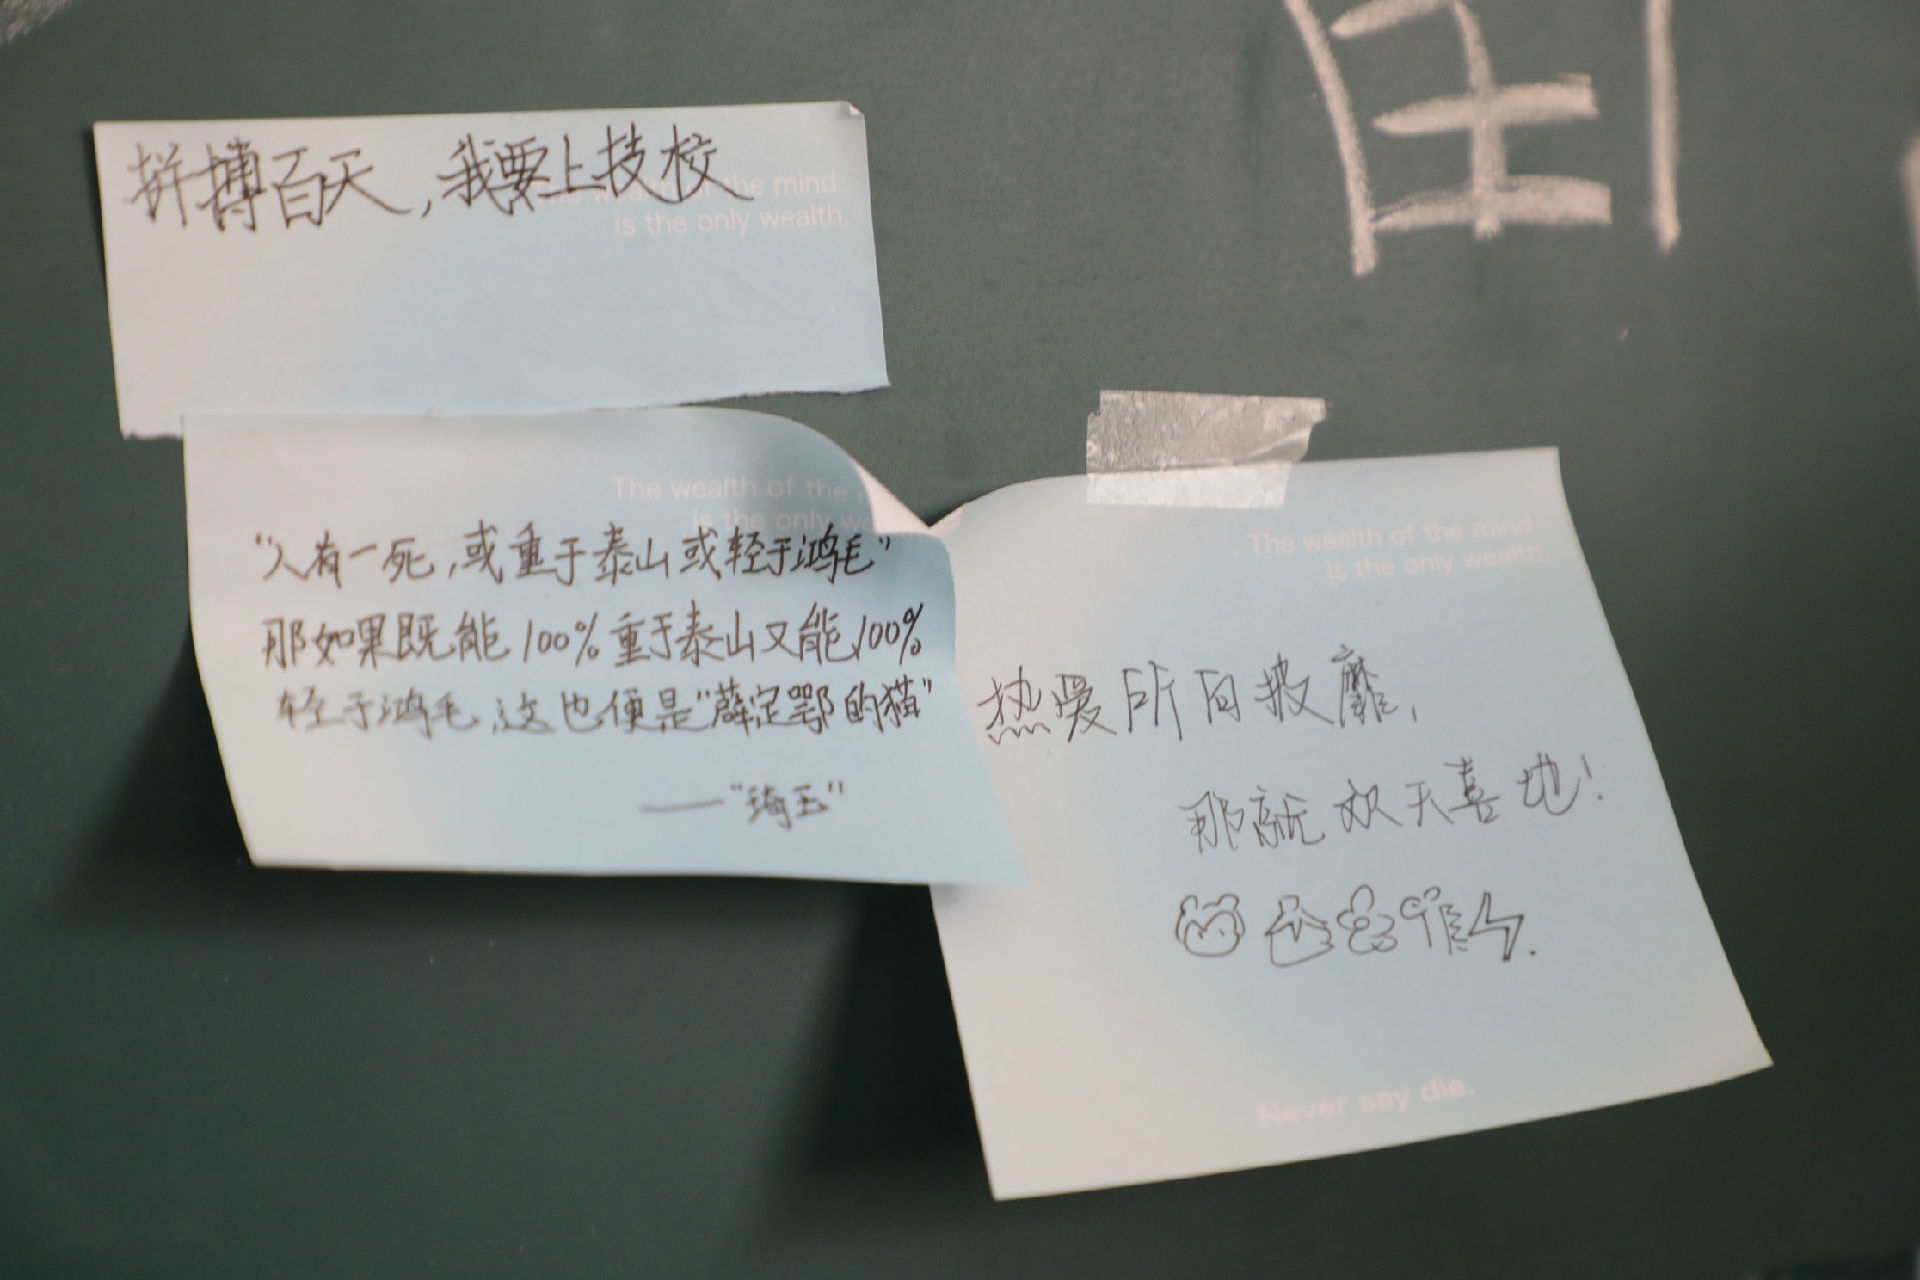 拼搏百天，我要上技校
The wealth of the mind
is the only wealth.
The wealth of the
is the only we
“人有一死，或重于泰山或轻于鸿毛”
那如果既能100%重于泰山又能100%
轻于鸿毛，这也便是“薛定鄂的猫”
——“琦玉”
The wealth of the mind
is the only wealth
热爱所向披靡，
那就欢天喜地！
Never say die.